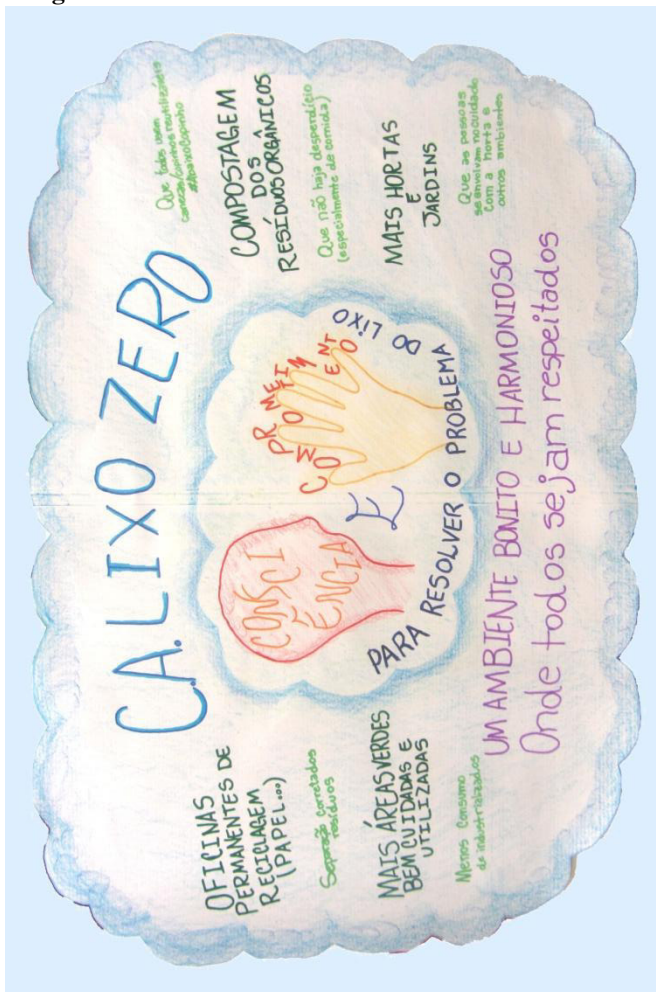 C.A. LIXO ZERO
OFICINAS
PERMANENTES DE
RECICLAGEM
(PAPEL...)
Separação corretados
resíduos
MAIS ÁREAS VERDES
BEM CUIDADAS E
UTILIZADAS
Menos Consumo
de industrializados
CONSCI
ÊNCIA
E
COMPROMETIMENTO
PARA RESOLVER O PROBLEMA DO LIXO
Que todos usem
reutilizáveis
#AbaixoCopinho
COMPOSTAGEM
DOS
RESÍDUOS ORGÂNICOS
Que não haja desperdício
(especialmente de comida)
MAIS HORTAS
E
JARDINS
Que as pessoas
se envolvam no cuidado
com a horta e
outros ambientes
UM AMBIENTE BONITO E HARMONIOSO
Onde todos sejam respeitados